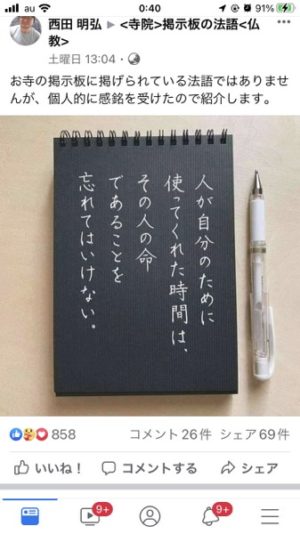 0:40
91%
西田 明弘 ▶ <寺院>掲示板の法語<仏
教>
土曜日 13:04・
お寺の掲示板に掲げられている法語ではありませ
んが、個人的に感銘を受けたので紹介します。
人が自分のために
使ってくれた時間は、
その人の命
であることを
忘れてはいけない。
858
コメント26件 シェア69件
いいね!
コメントする
シェア
9+
9+